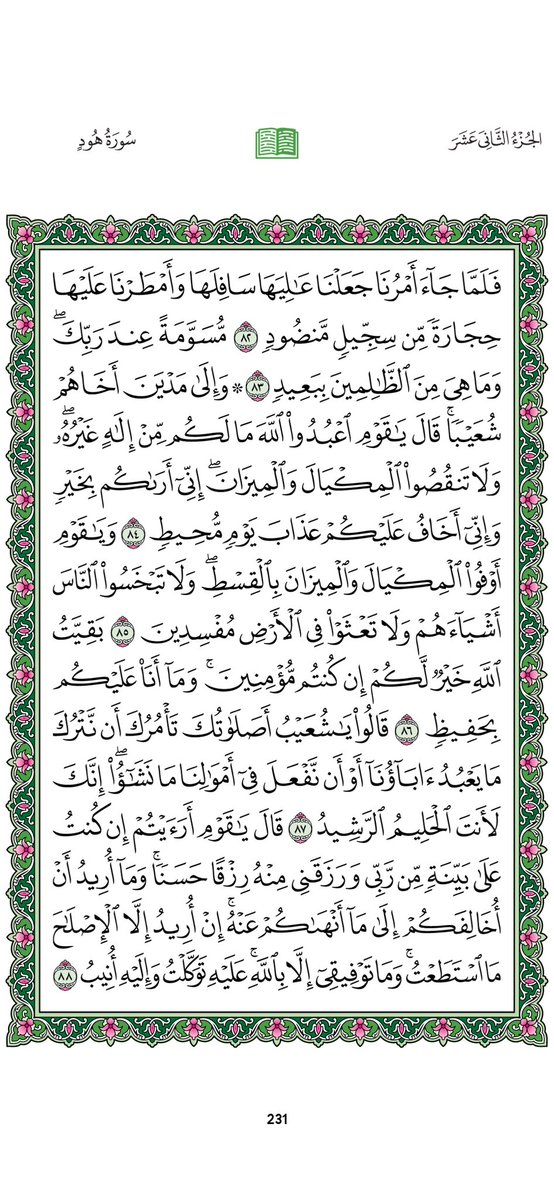 الجُزْءُ الثَّانِىَ عَشَرَ
سُورَةُ هُودٍ
فَلَمَّا جَآءَ أَمْرُنَا جَعَلْنَا عَٰلِيَهَا سَافِلَهَا وَأَمْطَرْنَا عَلَيْهَا
حِجَارَةً مِّن سِجِّيلٍ مَّنضُودٍ ٨٢ مُّسَوَّمَةً عِندَ رَبِّكَۖ
وَمَا هِىَ مِنَ ٱلظَّٰلِمِينَ بِبَعِيدٍ ٨٣ ۞ وَإِلَىٰ مَدْيَنَ أَخَاهُمْ
شُعَيْبًاۚ قَالَ يَٰقَوْمِ ٱعْبُدُوا۟ ٱللَّهَ مَا لَكُم مِّنْ إِلَٰهٍ غَيْرُهُۥۖ
وَلَا تَنقُصُوا۟ ٱلْمِكْيَالَ وَٱلْمِيزَانَۖ إِنِّىٓ أَرَىٰكُم بِخَيْرٍ
وَإِنِّىٓ أَخَافُ عَلَيْكُمْ عَذَابَ يَوْمٍ مُّحِيطٍ ٨٤ وَيَٰقَوْمِ
أَوْفُوا۟ ٱلْمِكْيَالَ وَٱلْمِيزَانَ بِٱلْقِسْطِۖ وَلَا تَبْخَسُوا۟ ٱلنَّاسَ
أَشْيَآءَهُمْ وَلَا تَعْثَوْا۟ فِى ٱلْأَرْضِ مُفْسِدِينَ ٨٥ بَقِيَّتُ
ٱللَّهِ خَيْرٌ لَّكُمْ إِن كُنتُم مُّؤْمِنِينَۚ وَمَآ أَنَا۠ عَلَيْكُم
بِحَفِيظٍ ٨٦ قَالُوا۟ يَٰشُعَيْبُ أَصَلَوٰتُكَ تَأْمُرُكَ أَن نَّتْرُكَ
مَا يَعْبُدُ ءَابَآؤُنَآ أَوْ أَن نَّفْعَلَ فِىٓ أَمْوَٰلِنَا مَا نَشَٰٓؤُا۟ۖ إِنَّكَ
لَأَنتَ ٱلْحَلِيمُ ٱلرَّشِيدُ ٨٧ قَالَ يَٰقَوْمِ أَرَءَيْتُمْ إِن كُنتُ
عَلَىٰ بَيِّنَةٍ مِّن رَّبِّى وَرَزَقَنِى مِنْهُ رِزْقًا حَسَنًاۚ وَمَآ أُرِيدُ أَنْ
أُخَالِفَكُمْ إِلَىٰ مَآ أَنْهَىٰكُمْ عَنْهُۚ إِنْ أُرِيدُ إِلَّا ٱلْإِصْلَٰحَ
مَا ٱسْتَطَعْتُۚ وَمَا تَوْفِيقِىٓ إِلَّا بِٱللَّهِۚ عَلَيْهِ تَوَكَّلْتُ وَإِلَيْهِ أُنِيبُ ٨٨
231